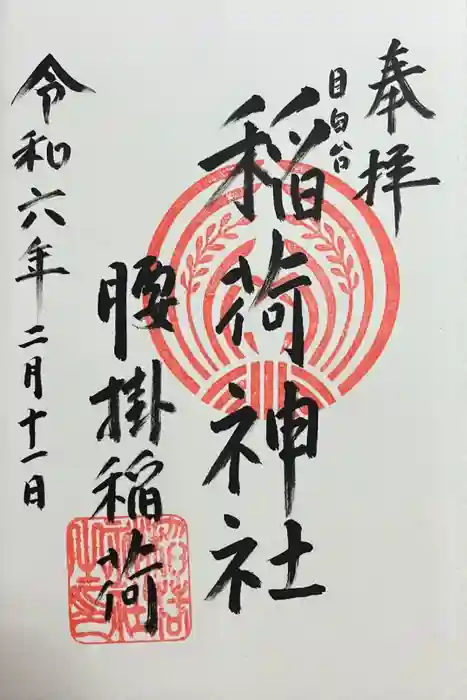 奉拝
目白台
稲荷神社
腰掛稲荷
令和六年二月十一日